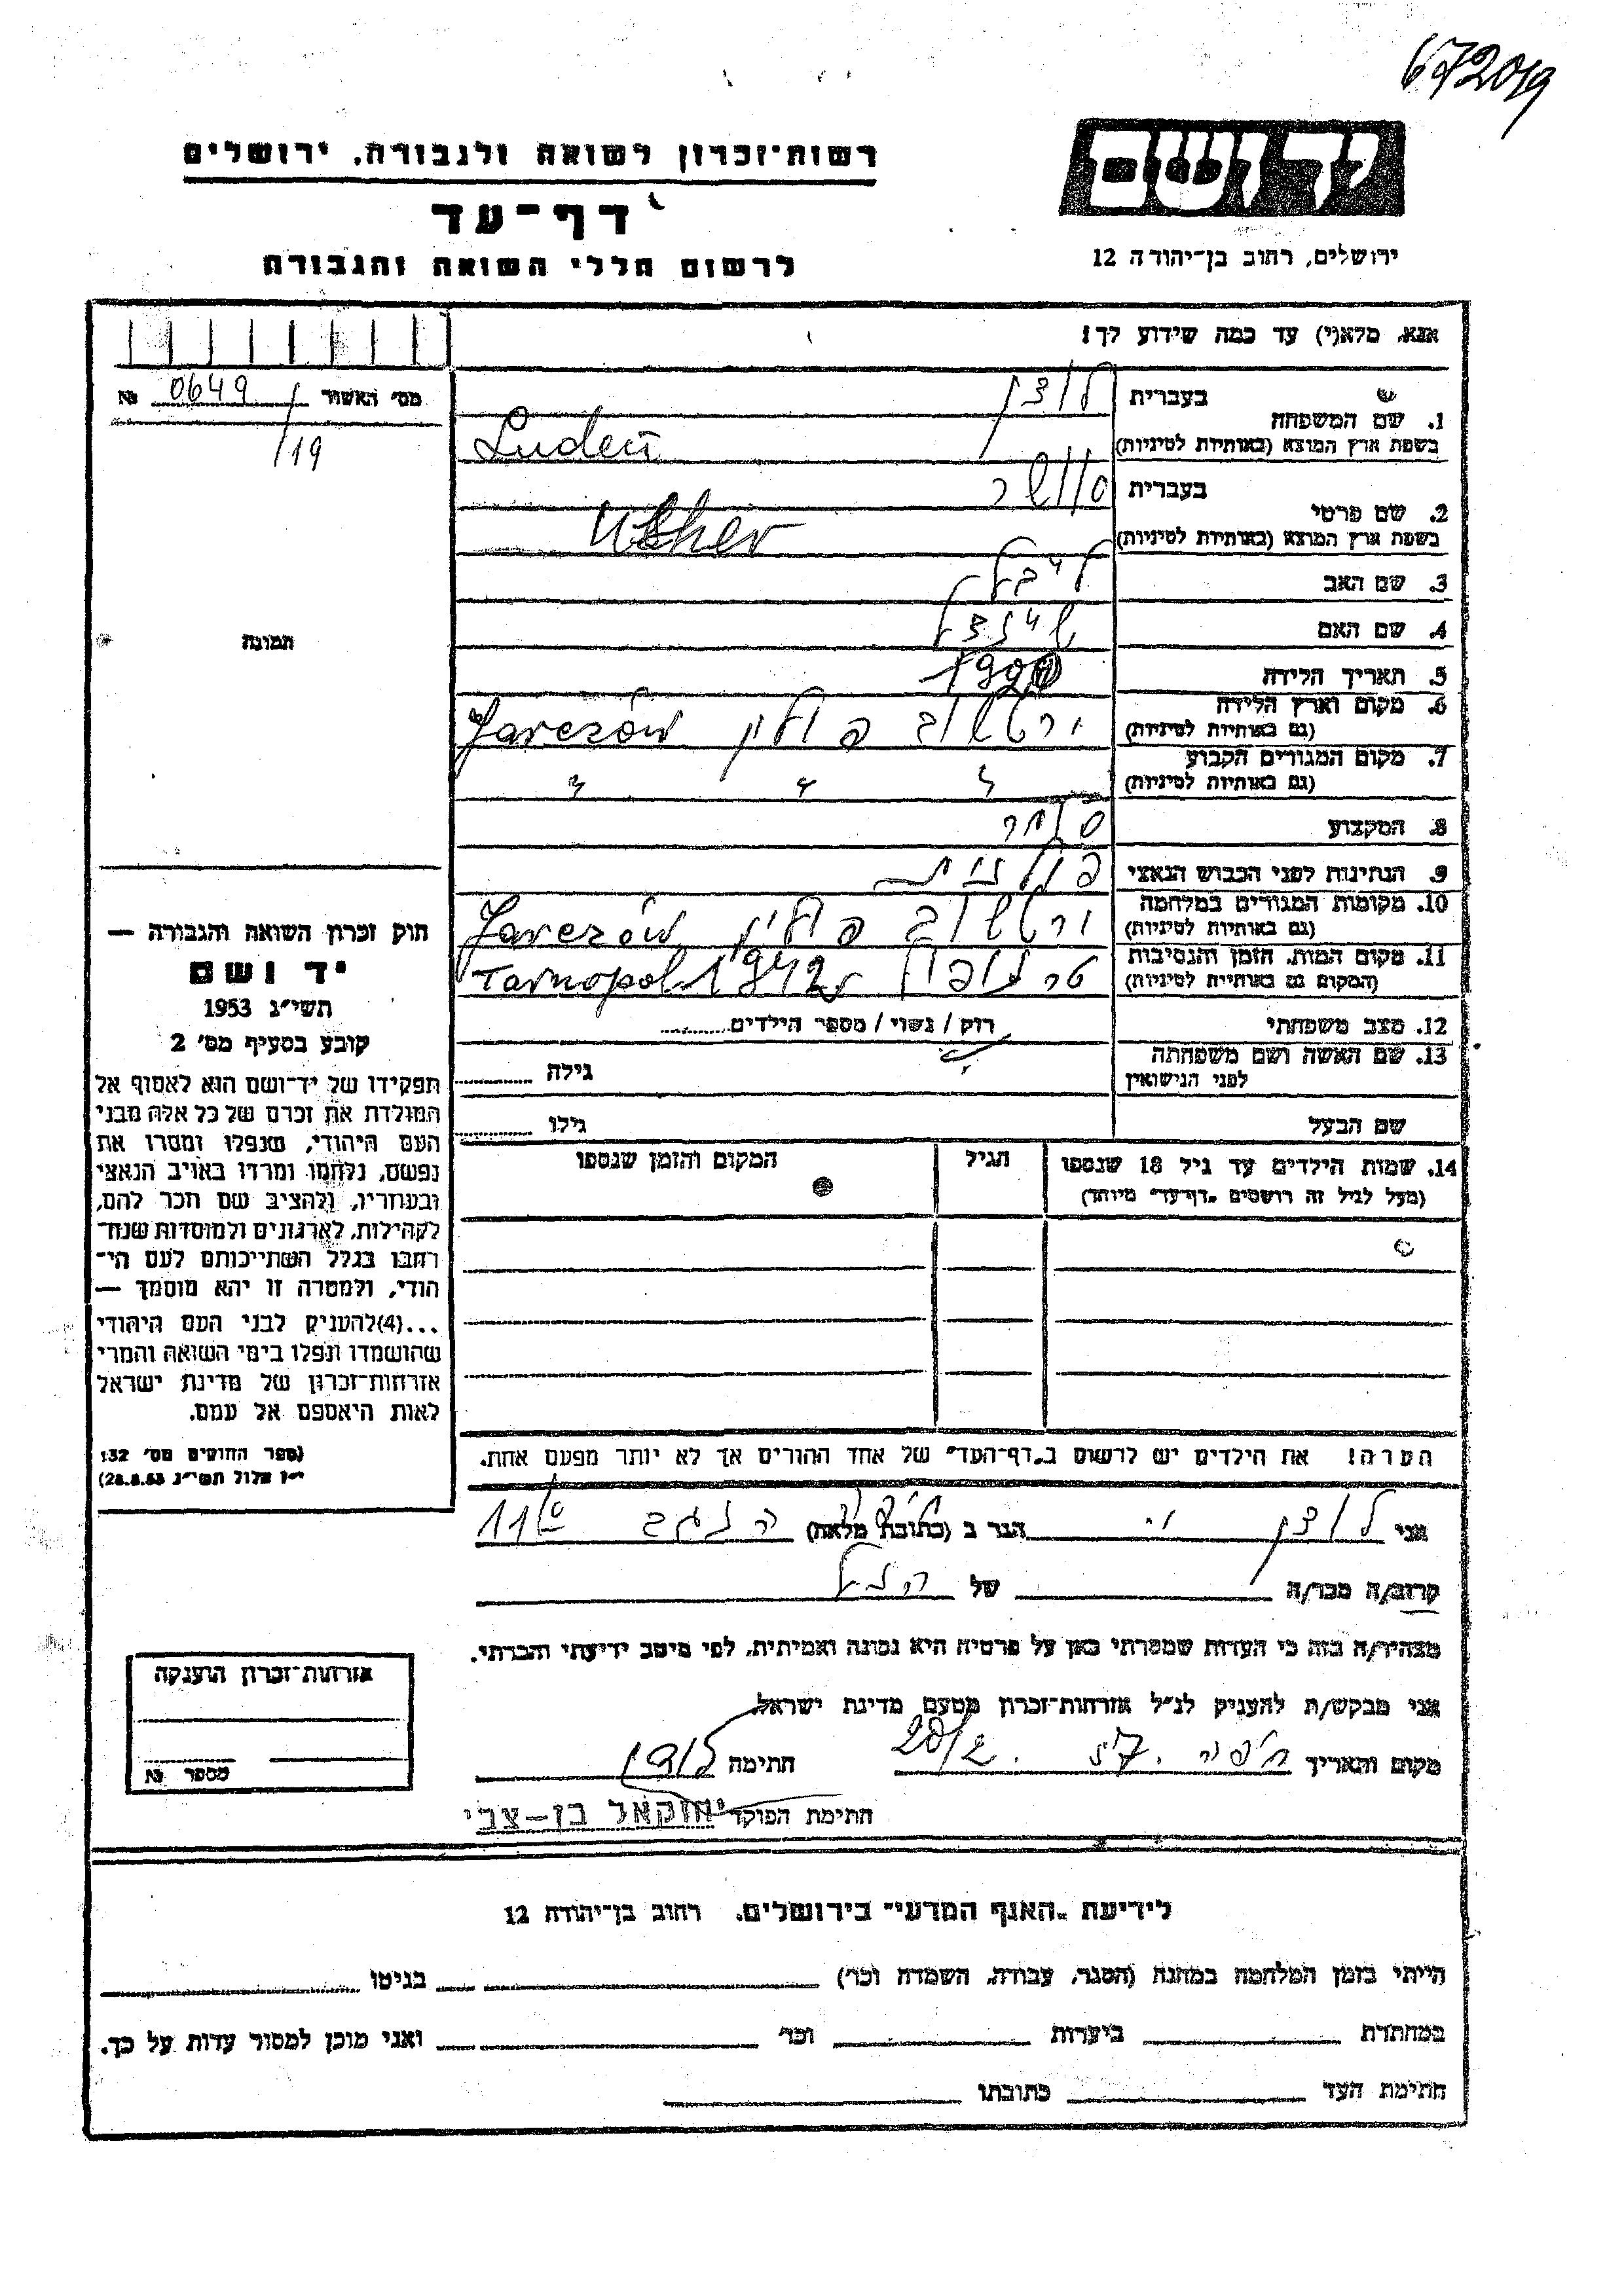 672019
רשות־זכרון לשואה ולגבורה, ירושלים
דף־עד
לרשום חללי השואה והגבורה
יד ושם
ירושלים, רחוב בן־יהודה 12
אנא, מלא(י) עד כמה שידוע לך!
מס׳ האשור 0649 №
/19
תמונה
1. שם המשפחה
בעברית
בשפת ארץ המוצא (באותיות לטיניות)
Luden
2. שם פרטי
בעברית
בשפת ארץ המוצא (באותיות לטיניות)
Usher
3. שם האב
4. שם האם
5. תאריך הלידה
6. מקום וארץ הלידה
(גם באותיות לטיניות)
פולין
7. מקום המגורים הקבוע
(גם באותיות לטיניות)
8. המקצוע סוחר
9. הנתינות לפני הכבוש הנאצי פולנית
10. מקומות המגורים במלחמה
(גם באותיות לטיניות)
פולין
11. מקום המות, הזמן והנסיבות
(המקום גם באותיות לטיניות)
טרנופול 1942 Tarnopol
12. מצב משפחתי רוק / נשוי / מספר הילדים
13. שם האשה ושם משפחתה
לפני הנישואין
גילה
שם הבעל גילו
14. שמות הילדים עד גיל 18 שנספו
(מעל לגיל זה רושמים „דף־עד״ מיוחד)
הגיל
המקום והזמן שנספו
הערה! את הילדים יש לרשום ב„דף־העד״ של אחד ההורים אך לא יותר מפעם אחת.
חוק זכרון השואה והגבורה —
יד ושם
תשי״ג 1953
קובע בסעיף מס׳ 2
תפקידו של יד־ושם הוא לאסוף אל
המולדת את זכרם של כל אלה מבני
העם היהודי, שנפלו ומסרו את
נפשם, נלחמו ומרדו באויב הנאצי
ובעוזריו, ולהציב שם וזכר להם,
לקהילות, לארגונים ולמוסדות שנח־
רבו בגלל השתייכותם לעם הי־
הודי, ולמטרה זו יהא מוסמך —
...(4) להעניק לבני העם היהודי
שהושמדו ונפלו בימי השואה והמרי
אזרחות־זכרון של מדינת ישראל
לאות היאספם אל עמם.
(ספר החוקים מס׳ 132
י״ז אלול תשי״ג 28.8.53)
אני הגר ב (כתובת מלאה) חיפה הנגב 11
קרוב/ה מכר/ה של הנ״ל
מצהיר/ה בזה כי העדות שמסרתי כאן על פרטיה היא נכונה ואמיתית, לפי מיטב ידיעתי והכרתי.
אני מבקש/ת להעניק לנ״ל אזרחות־זכרון מטעם מדינת ישראל.
מקום ותאריך חיפה 57. 20/2 חתימה
חתימת הפוקד יחזקאל בן-צבי
אזרחות־זכרון הוענקה
מספר №
לידיעת „האגף המדעי״ בירושלים, רחוב בן־יהודה 12
הייתי בזמן המלחמה במחנה (הסגר, עבודה, השמדה וכו׳) בגיטו
במחתרת ביערות וכו׳ ואני מוכן למסור עדות על כך.
חתימת העד כתובתו